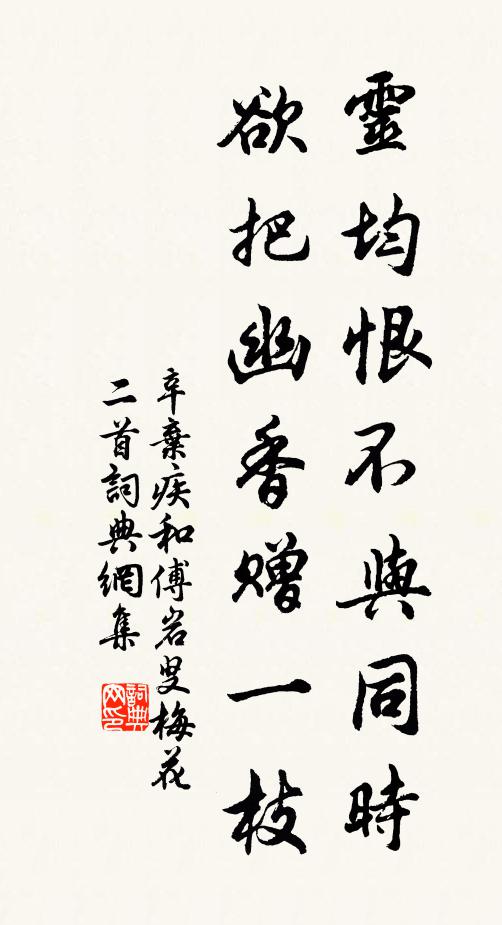 靈均恨不與同時
欲把幽香贈一枝
辛棄疾和傅岩叟梅花
二首詞典網集
詞典網印